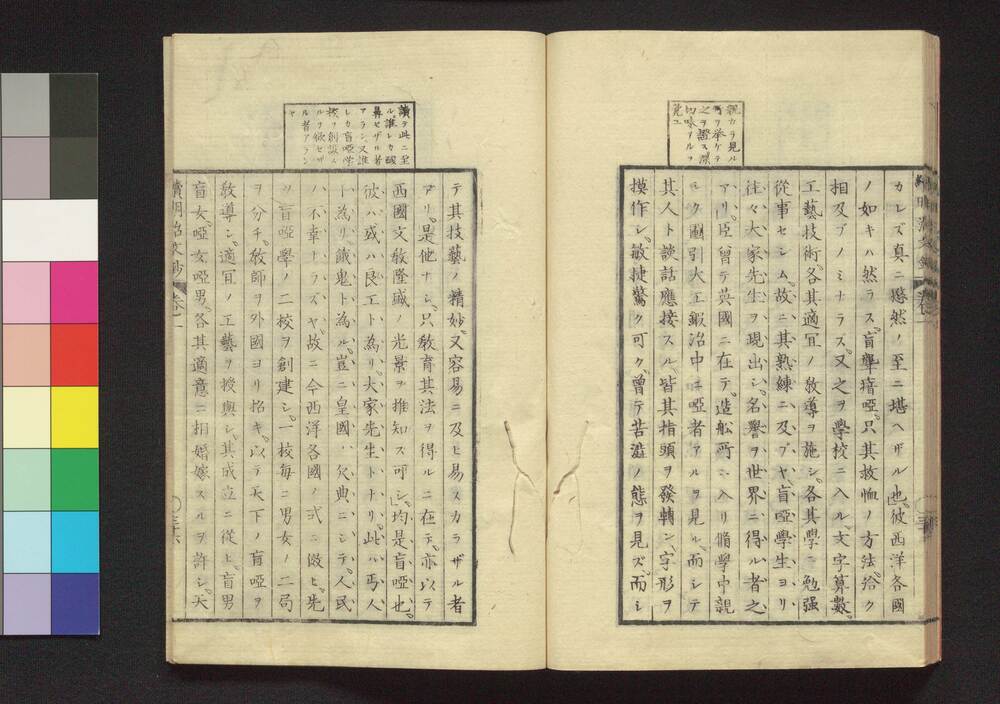 親カラ見ル
所ヲ挙ケテ
之ヲ證ス深
切味アルヲ
覚ユ
カレズ真ニ愍然ノ至ニ堪ヘザル也彼西洋各國
ノ如キハ然ラス盲聾瘖啞只其救恤ノ方法洽ク
相及ブノミナラス又之ヲ學校ニ入ル文字算數
工藝技術各其適冝ノ教導ヲ施シ各其學ニ勉強
從事セシム故ニ其熟練ニ及ブヤ盲啞學生ヨリ
往々大家先生ヲ現出シ名譽ヲ世界ニ得ル者之
アリ臣曾テ英國ニ在テ造舩所ニ入リ脩學中親
ク圖引大工鍛冶中ニ啞者アルヲ見ル而シテ
其人ト談話應接スル皆其指頭ヲ發轉シ字形ヲ
摸作シ敏捷驚ク可ク曾テ苦澁ノ態ヲ見ズ而シ
讀テ此ニ至
ル誰レカ酸
鼻セザル者
アラン又誰
レカ盲啞学
校ヲ創設ス
ルヲ欲セザ
ル者アラン
ヤ
テ其技藝ノ精妙又容易ニ及ヒ易スカラザル者
アリ是他ナシ只敎育其法ヲ得ルニ在テ亦以テ
西國文敎隆盛ノ光景ヲ推知ス可シ均是盲啞也
彼ハ或ハ良工ト為リ大家先生トナリ此ハ丐人
ト為リ餓鬼ト為ル豈ニ皇國ノ欠典ニシテ人民
ノ不幸ナラズヤ故ニ今西洋各國ノ式ニ倣ヒ先
ツ盲啞學ノ二校ヲ創建シ一校毎ニ男女ノ二局
ヲ分チ敎師ヲ外國ヨリ招キ以テ天下ノ盲啞ヲ
敎導シ適冝ノ工藝ヲ授與シ其成立ニ從ヒ盲男
盲女啞女啞男各其適意ニ相婚嫁スルヲ許シ天
續明治文鈔
卷一
三十六